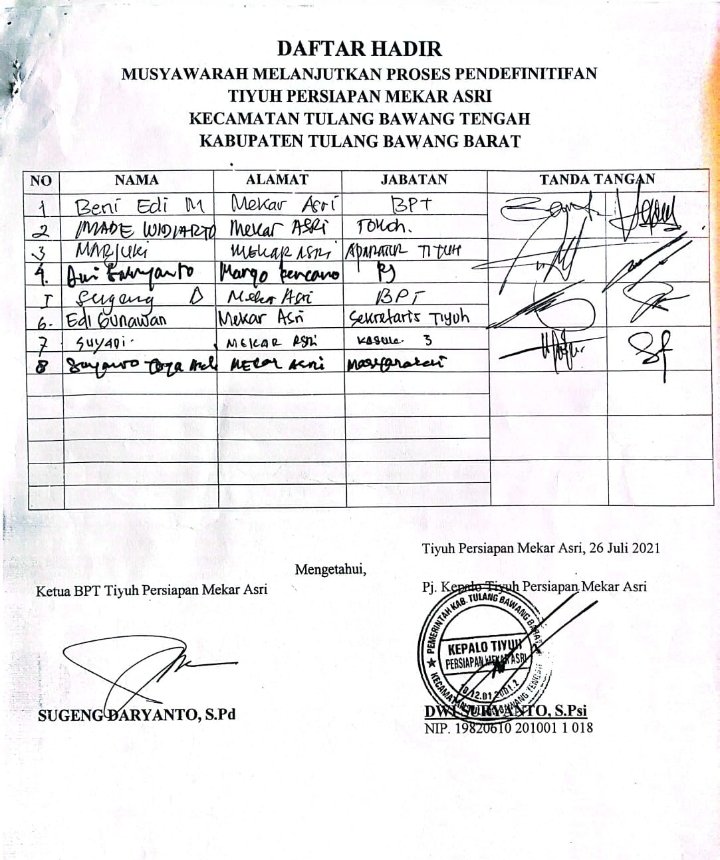 DAFTAR HADIR
MUSYAWARAH MELANJUTKAN PROSES PENDEFINITIFAN
TIYUH PERSIAPAN MEKAR ASRI
KECAMATAN TULANG BAWANG TENGAH
KABUPATEN TULANG BAWANG BARAT
NO NAMA ALAMAT JABATAN TANDA TANGAN
1 Beni Edi M Mekar Asri BPT
2 MADE WIDIARTO Mekar ASRI
3 MARJUKI MEKAR ASRI APARATUR TIYUH
4. Suryanto Margo Kencano PJ
5 Sugeng D Mekar Asri BPT
6. Edi Gunawan Mekar Asri Sekretaris Tiyuh
7 SUYADI. MEKAR ASRI 3
8 MEKAR ASRI Masyarakat
Tiyuh Persiapan Mekar Asri, 26 Juli 2021
Mengetahui,
Ketua BPT Tiyuh Persiapan Mekar Asri Pj. Kepalo Tiyuh Persiapan Mekar Asri
PEMERINTAH KAB. TULANG BAWANG BARAT
KEPALO TIYUH
PERSIAPAN MEKAR ASRI
KECAMATAN TULANG BAWANG TENGAH
SUGENG DARYANTO, S.Pd DWI SURYANTO, S.Psi
NIP. 19820610 201001 1 018